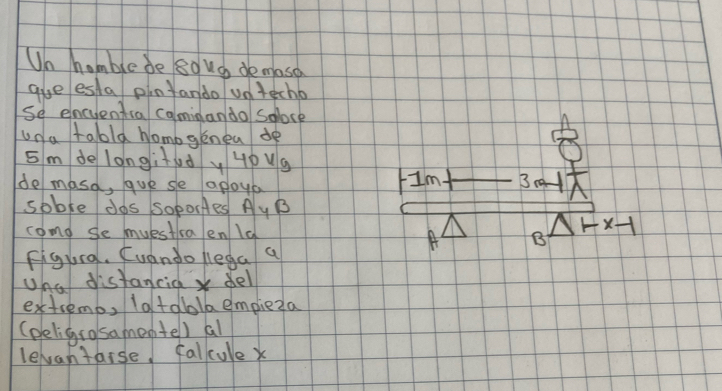 Un hombre de 80kg de masa
que esta pintando un techo
se encuentra caminando sobre
una tabla homogénea de
5m de longitud y 40kg
de masa, que se apoya
sobre dos soportes A y B
como se muestra en la
figura. Cuando llega a
una distancia x del
extremo, la tabla empieza
(peligrosamente) al
levantarse. Calcule x
1m 3m
A B x